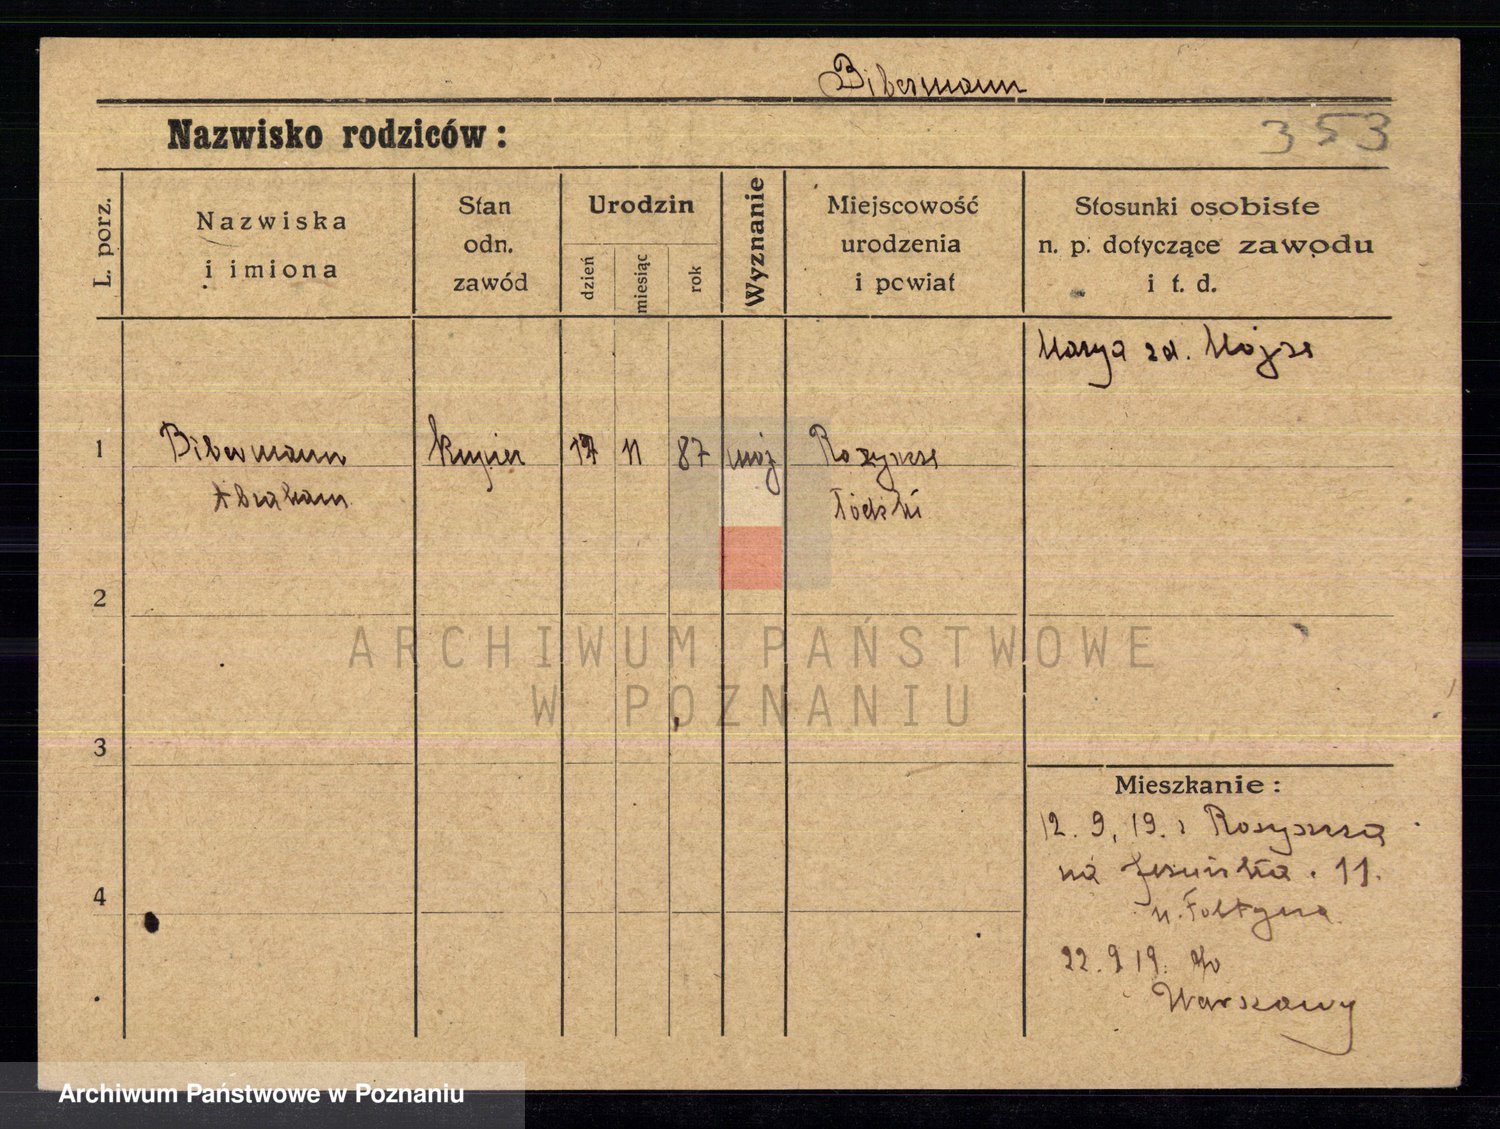 Bibermann
Nazwisko rodziców:
353
L. porz.
Nazwiska
i imiona
Stan
odn.
zawód
Urodzin
dzień
miesiąc
rok
Wyznanie
Miejscowość
urodzenia
i powiat
Stosunki osobiste
n. p. dotyczące zawodu
i t. d.
Marya zd. Mojze
1
Bibermann
Abraham
Kupiec
17
11
87
moj
Łódzki
2
3
4
Mieszkanie:
12. 9. 19. z
na 11.
u. Foltyna
22. 9 19. do
Warszawy
ARCHIWUM PAŃSTWOWE
W POZNANIU
Archiwum Państwowe w Poznaniu